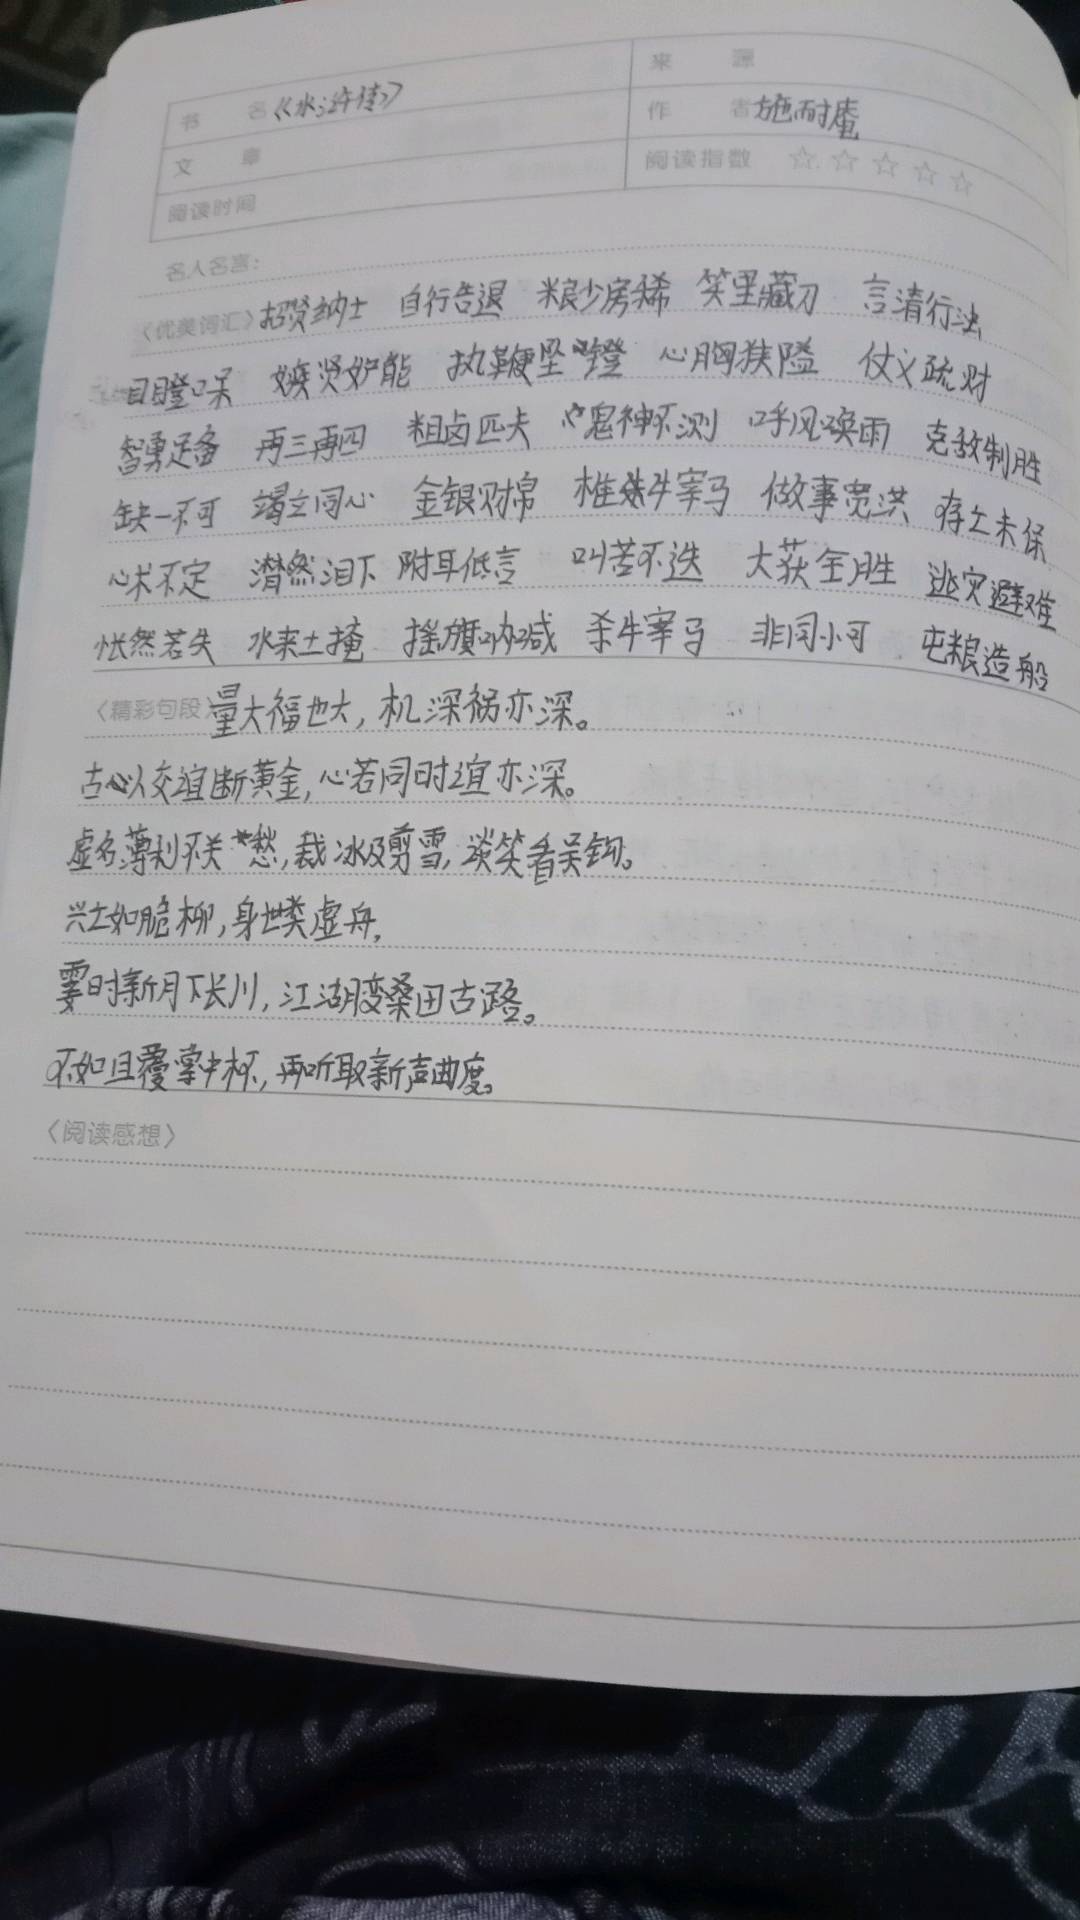 书 名 《水浒传》 来 源
文 章 作 者 施耐庵
阅读时间 阅读指数 ☆☆☆☆☆
名人名言：
〈优美词汇〉招贤纳士 自行告退 粮少房稀 笑里藏刀 言清行浊
目瞪口呆 嫉贤妒能 执鞭坠镫 心胸狭隘 仗义疏财
智勇足备 再三再四 粗卤匹夫 鬼神不测 呼风唤雨 克敌制胜
缺一不可 竭立同心 金银财帛 椎牛宰马 做事宽洪 存亡未保
心术不定 潸然泪下 附耳低言 叫苦不迭 大获全胜 逃灾避难
怅然若失 水来土掩 摇旗呐喊 杀牛宰马 非同小可 屯粮造船
〈精彩句段〉量大福也大，机深祸亦深。
古人交谊断黄金，心若同时谊亦深。
虚名薄利不关愁，裁冰及剪雪，谈笑看吴钩。
兴亡如脆柳，身世类虚舟，
霎时新月下长川，江湖变桑田古路。
不如且覆掌中杯，再听取新声曲度。
〈阅读感想〉